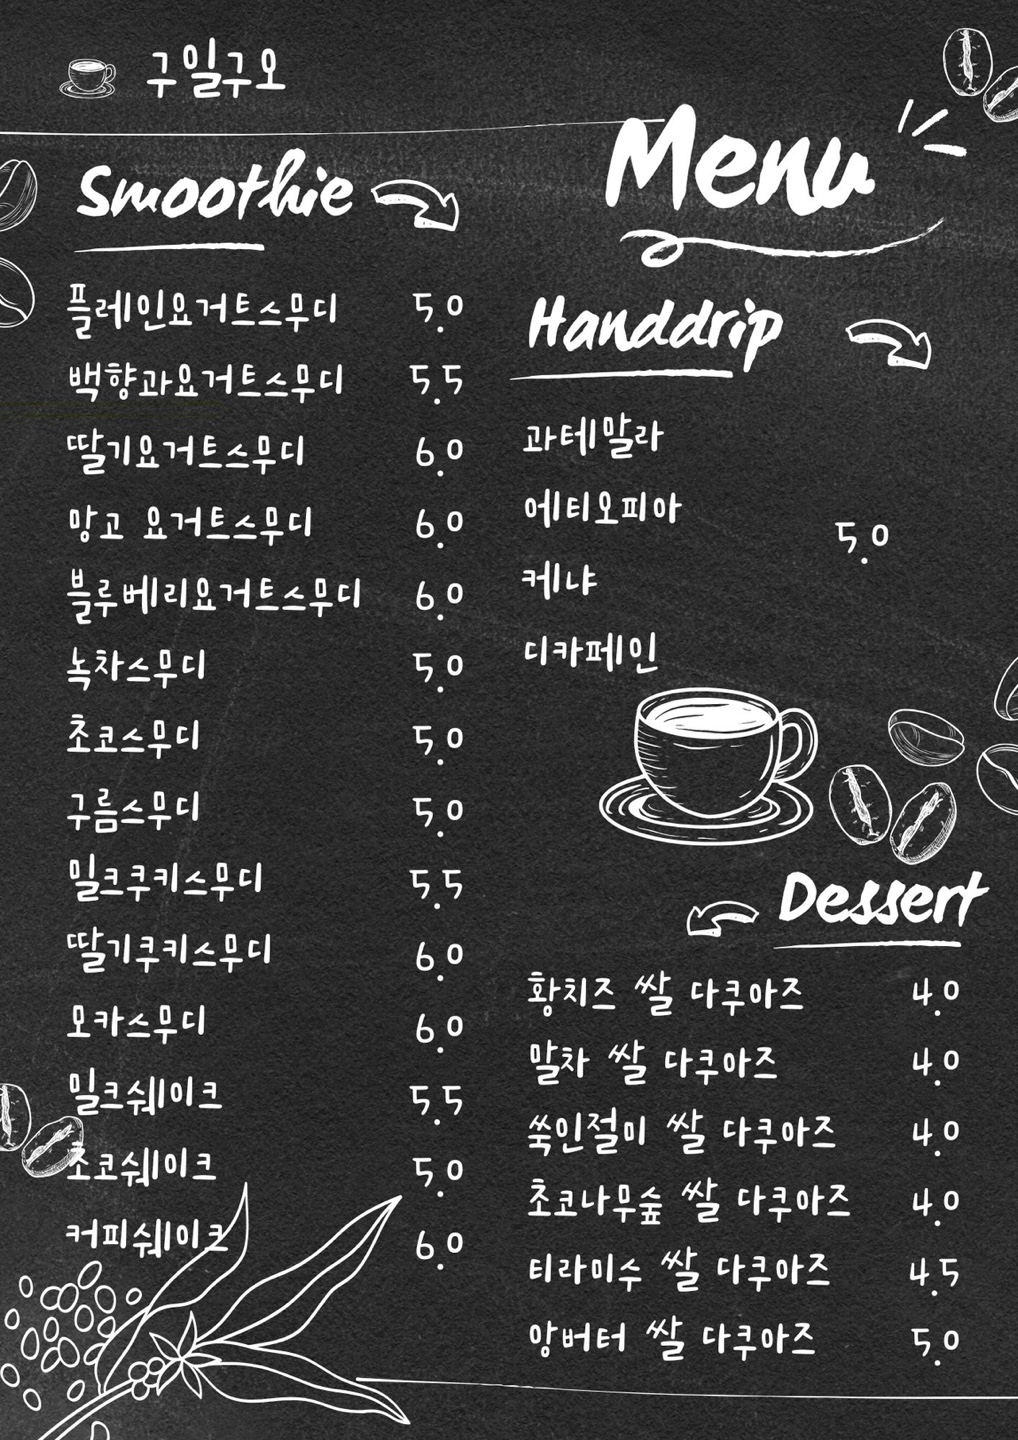 구일구오
Menu
Smoothie
플레인요거트스무디 5.0
백향과요거트스무디 5.5
딸기요거트스무디 6.0
망고 요거트스무디 6.0
블루베리요거트스무디 6.0
녹차스무디 5.0
초코스무디 5.0
구름스무디 5.0
밀크쿠키스무디 5.5
딸기쿠키스무디 6.0
모카스무디 6.0
밀크쉐이크 5.5
초코쉐이크 5.0
커피쉐이크 6.0
Handdrip
과테말라
에티오피아
5.0
케냐
디카페인
Dessert
황치즈 쌀 다쿠아즈 4.0
말차 쌀 다쿠아즈 4.0
쑥인절미 쌀 다쿠아즈 4.0
초코나무숲 쌀 다쿠아즈 4.0
티라미수 쌀 다쿠아즈 4.5
앙버터 쌀 다쿠아즈 5.0